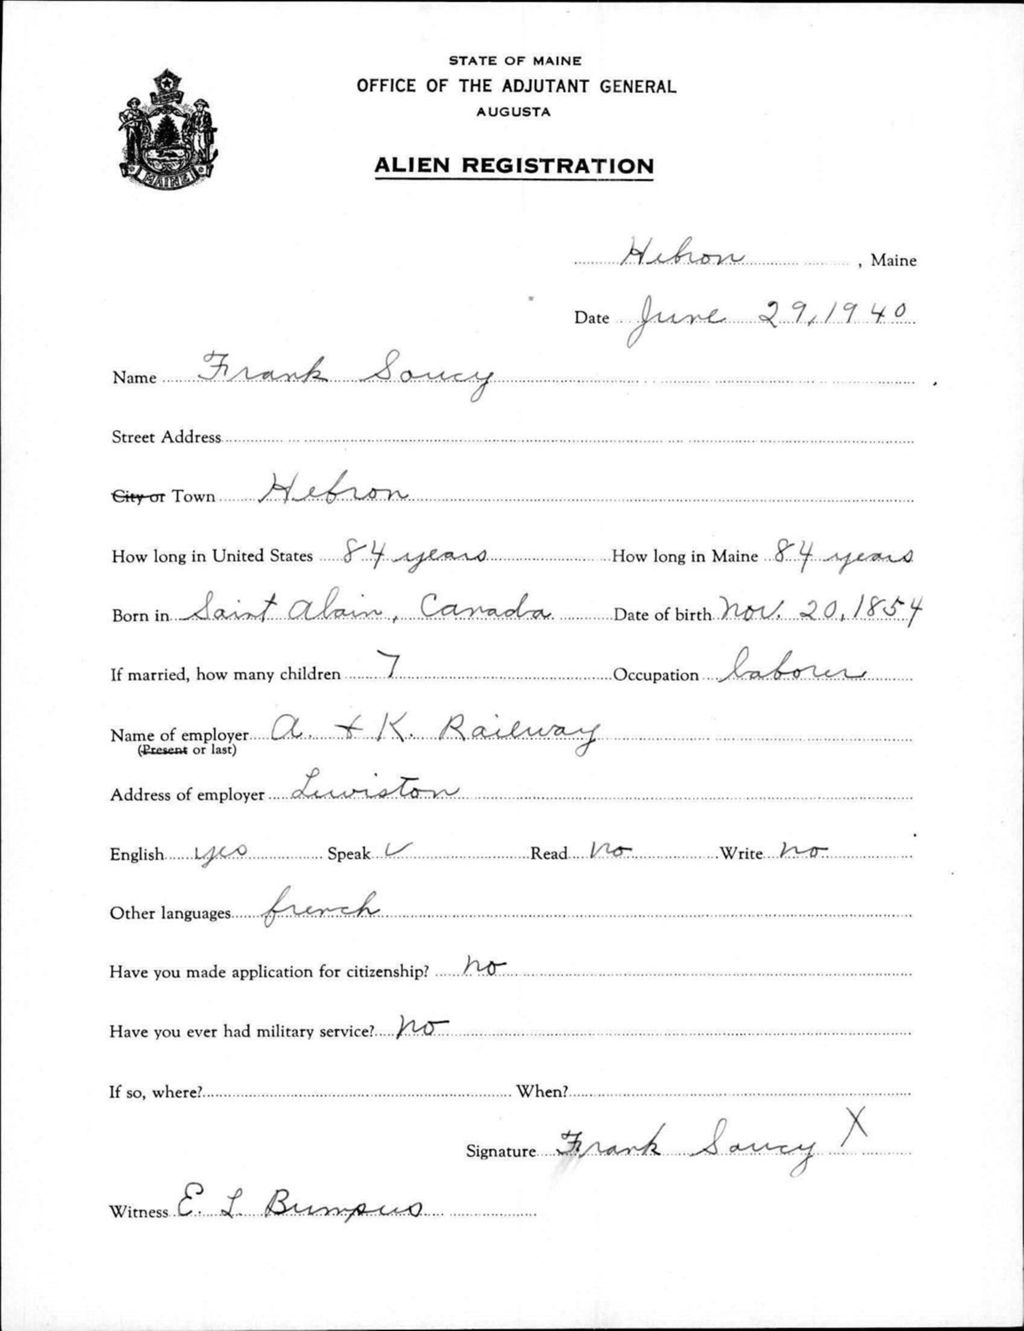 STATE OF MAINE
OFFICE OF THE ADJUTANT GENERAL
AUGUSTA
MAINE
ALIEN REGISTRATION
Hebron, Maine
Date June 29, 1940
Name Frank Soucy
Street Address
City or Town Hebron
How long in United States 84 years How long in Maine 84 years
Born in Saint Alain, Canada Date of birth Nov. 20, 1854
If married, how many children 7 Occupation laborer
Name of employer A. & K. Railway
(Present or last)
Address of employer Lewiston
English yes Speak ✓ Read no Write no
Other languages french
Have you made application for citizenship? no
Have you ever had military service? no
If so, where? When?
Signature Frank Soucy X
Witness E. L. Bumpus